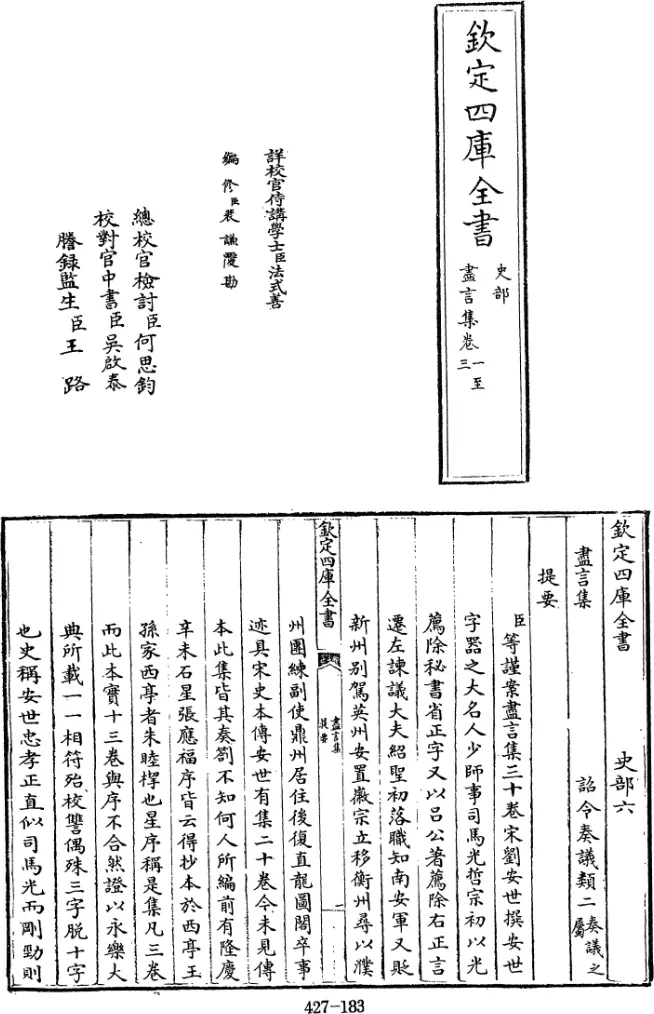 欽定四庫全書
史部
盡言集卷一至三
詳校官侍講學士臣法式善
編修臣裴謙覆勘
總校官檢討臣何思鈞
校對官中書臣吳啟泰
謄錄監生臣王路
欽定四庫全書 史部六
盡言集 詔令奏議類二奏議之屬
提要
臣等謹案盡言集三十卷宋劉安世撰安世
字器之大名人少師事司馬光哲宗初以光
薦除秘書省正字又以呂公著薦除右正言
遷左諫議大夫紹聖初落職知南安軍又貶
新州别駕英州安置徽宗立移衡州尋以濮
欽定四庫全書 盡言集提要 二
州團練副使鼎州居住後復直龍圖閣卒事
迹具宋史本傳安世有集二十卷今未見傳
本此集皆其奏劄不知何人所編前有隆慶
辛未石星張應福序皆云得抄本於西亭王
孫家西亭者朱睦㮮也星序稱是集凡三卷
而此本實十三卷與序不合然證以永樂大
典所載一一相符殆校讐偶殊三字脱十字
也史稱安世忠孝正直似司馬光而剛勁則
427-183